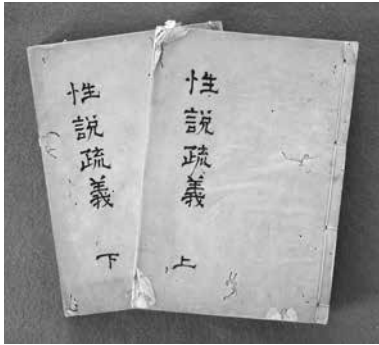 性説疏義
下
性説疏義
上